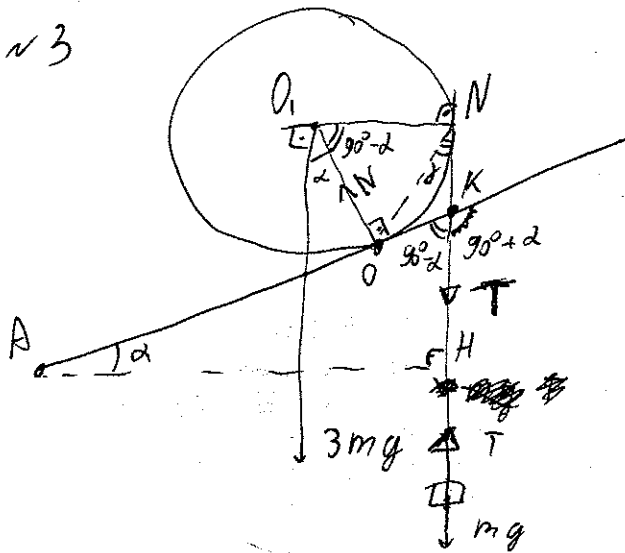 №3
O₁ N
90°-α
α N γ K
90°-α 90°+α
O
T
A α H
3mg T
mg